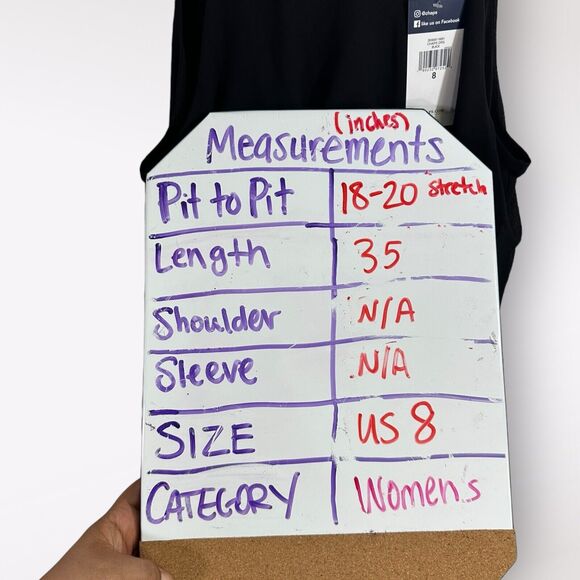 @chaps
like us on Facebook
8
(inches)
Measurements
Pit to Pit 18-20 stretch
Length 35
Shoulder N/A
Sleeve N/A
SIZE US 8
CATEGORY Women's